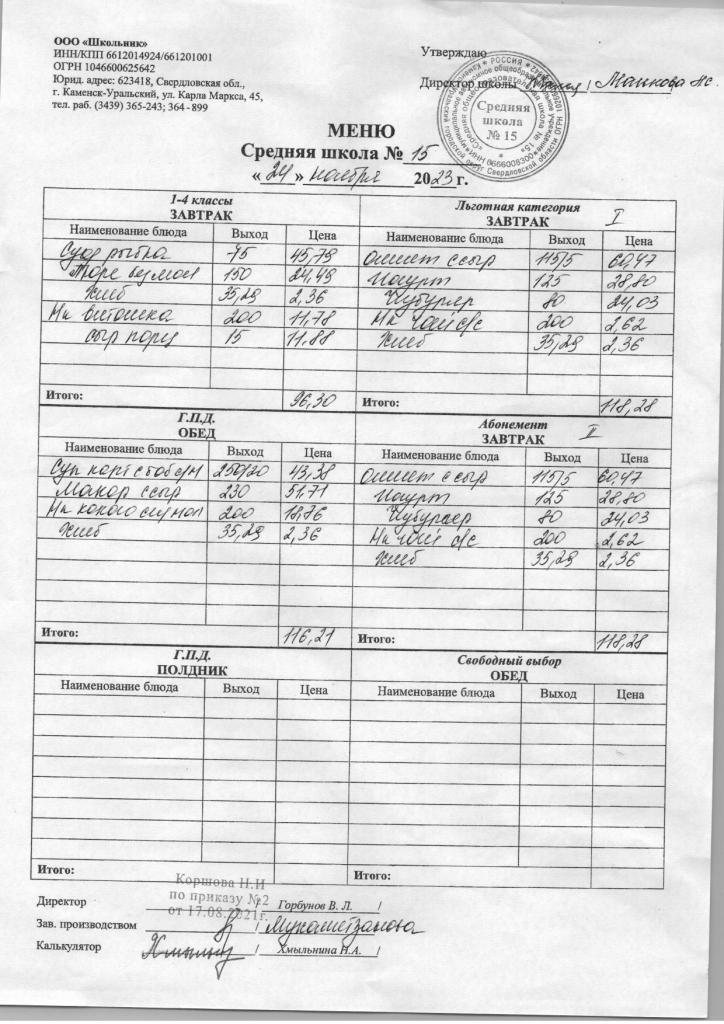 ООО «Школьник»
ИНН/КПП 6612014924/661201001
ОГРН 1046600625642
Юрид. адрес: 623418, Свердловская обл.,
г. Каменск-Уральский, ул. Карла Маркса, 45,
тел. раб. (3439) 365-243; 364 - 899
Утверждаю
Директор школы / Манкова Н.С.
Средняя
школа
№ 15
МЕНЮ
Средняя школа № 15
«24» ноября 2023 г.
1-4 классы
ЗАВТРАК
Наименование блюда Выход Цена
рыбка 75 45,79
Пюре 150 24,49
Хлеб 35,29 2,36
Нк витошка 200 11,78
сыр порц 15 11.88
Итого: 96,30
Льготная категория
ЗАВТРАК I
Наименование блюда Выход Цена
Омлет с сыр 115/5 60,47
Йогурт 125 28,80
Чубургер 80 24,03
Нк чай с/с 200 2,62
Хлеб 35,29 2,36
Итого: 118,28
Г.П.Д.
ОБЕД
Наименование блюда Выход Цена
Суп карт с 250/20 43,38
Макар с сыр 230 51,71
Нк какао 200 18,76
Хлеб 35,29 2,36
Итого: 116,21
Абонемент
ЗАВТРАК II
Наименование блюда Выход Цена
Омлет с сыр 115/5 60,47
Йогурт 125 28,80
Чубургер 80 24,03
Нк чай с/с 200 2,62
Хлеб 35,29 2,36
Итого: 118,28
Г.П.Д.
ПОЛДНИК
Наименование блюда Выход Цена
Итого:
Свободный выбор
ОБЕД
Наименование блюда Выход Цена
Итого:
Коршова Н.И
по приказу №2
от 17.08.2021г.
Директор / Горбунов В. Л. /
Зав. производством / Мухаметзанова
Калькулятор / Хмыльнина Н.А. /